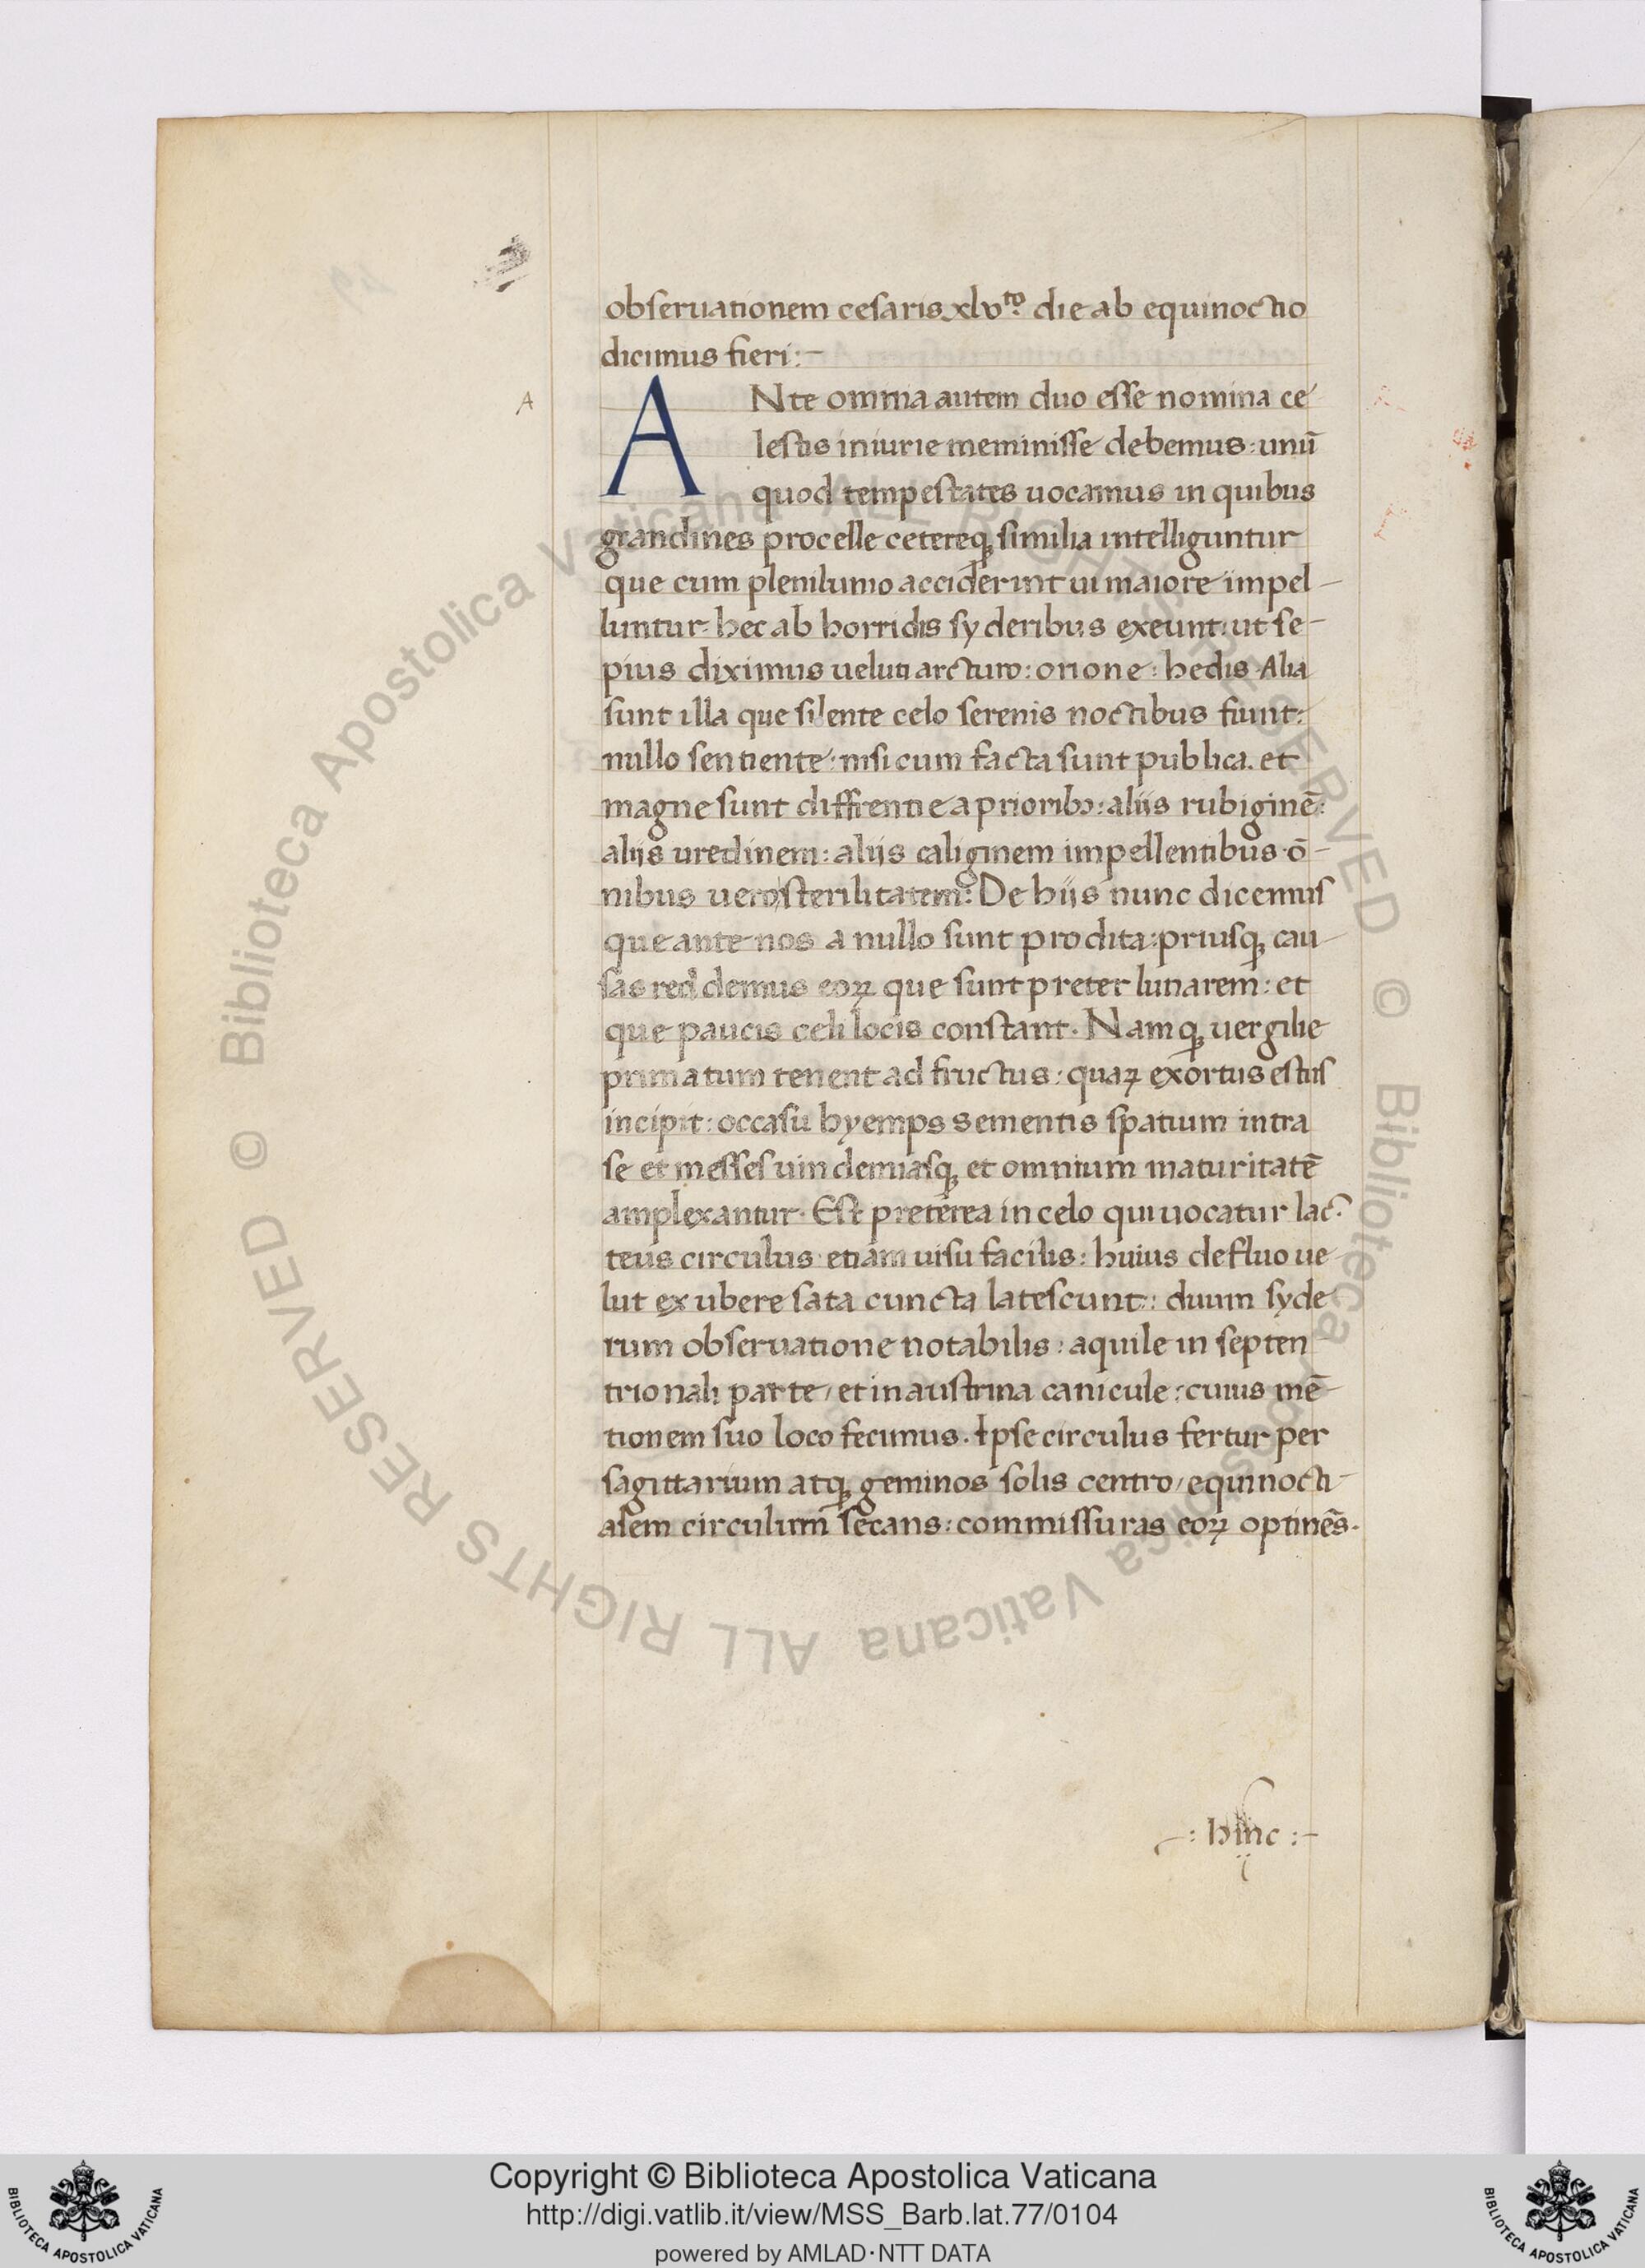 obſeruationem ceſaris xlv.to die ab equinoctio
dicimus fieri:-
A
ANte omnia autem duo eſſe nomina ce
leſtis iniurie meminiſſe debemus: unū
quod tempeſtates uocamus in quibus
grandines procelle cetereqꝫ ſimilia intelliguntur
que cum plenilunio acciderint ui maiore impel-
luntur: hec ab horridis ſyderibus exeunt: ut ſe-
pius diximus ueluti arcturo: orione: hedis. Alia
ſunt illa que ſilente celo ſerenis noctibus fiunt:
nullo ſentiente: niſi cum facta ſunt publica. et
magne ſunt diffrentie a prioribꝫ: aliis rubiginē:
aliis uredinem: aliis caliginem impellentibus. ō-
nibus uero ſterilitatem: De hiis nunc dicemuſ
que ante nos a nullo ſunt prodita: priuſqꝫ cau-
ſas reddemus eoꝝ que ſunt preter lunarem: et
que paucis celi locis conſtant. Namqꝫ uergilie
primatum tenent ad fructus: quaꝝ exortus eſtuſ
incipit: occaſu hyemps sementis ſpatium intra
ſe et meſſeſ uindemiaſqꝫ et omnium maturitatē
amplexantur. Eſt preterea in celo qui uocatur lac
teus circulus etiam uiſu facilis: huius defluo ue
lut ex ubere ſata cuncta lateſcunt: duum ſyde
rum obſeruatione notabilis: aquile in ſepten
trionali parte, et in auſtrina canicule: cuius mē-
tionem ſuo loco fecimus. Ipſe circulus fertur per
ſagittarium atqꝫ geminos ſolis centro, equinocti-
alem circulum ſecans: commiſſuras eoꝝ optinēs.
-: hinc :-
© Biblioteca Apostolica Vaticana ALL RIGHTS RESERVED © Biblioteca Apostolica Vaticana ALL RIGHTS RESERVED
Copyright © Biblioteca Apostolica Vaticana
http://digi.vatlib.it/view/MSS_Barb.lat.77/0104
powered by AMLAD·NTT DATA
BIBLIOTECA APOSTOLICA VATICANA
BIBLIOTECA APOSTOLICA VATICANA